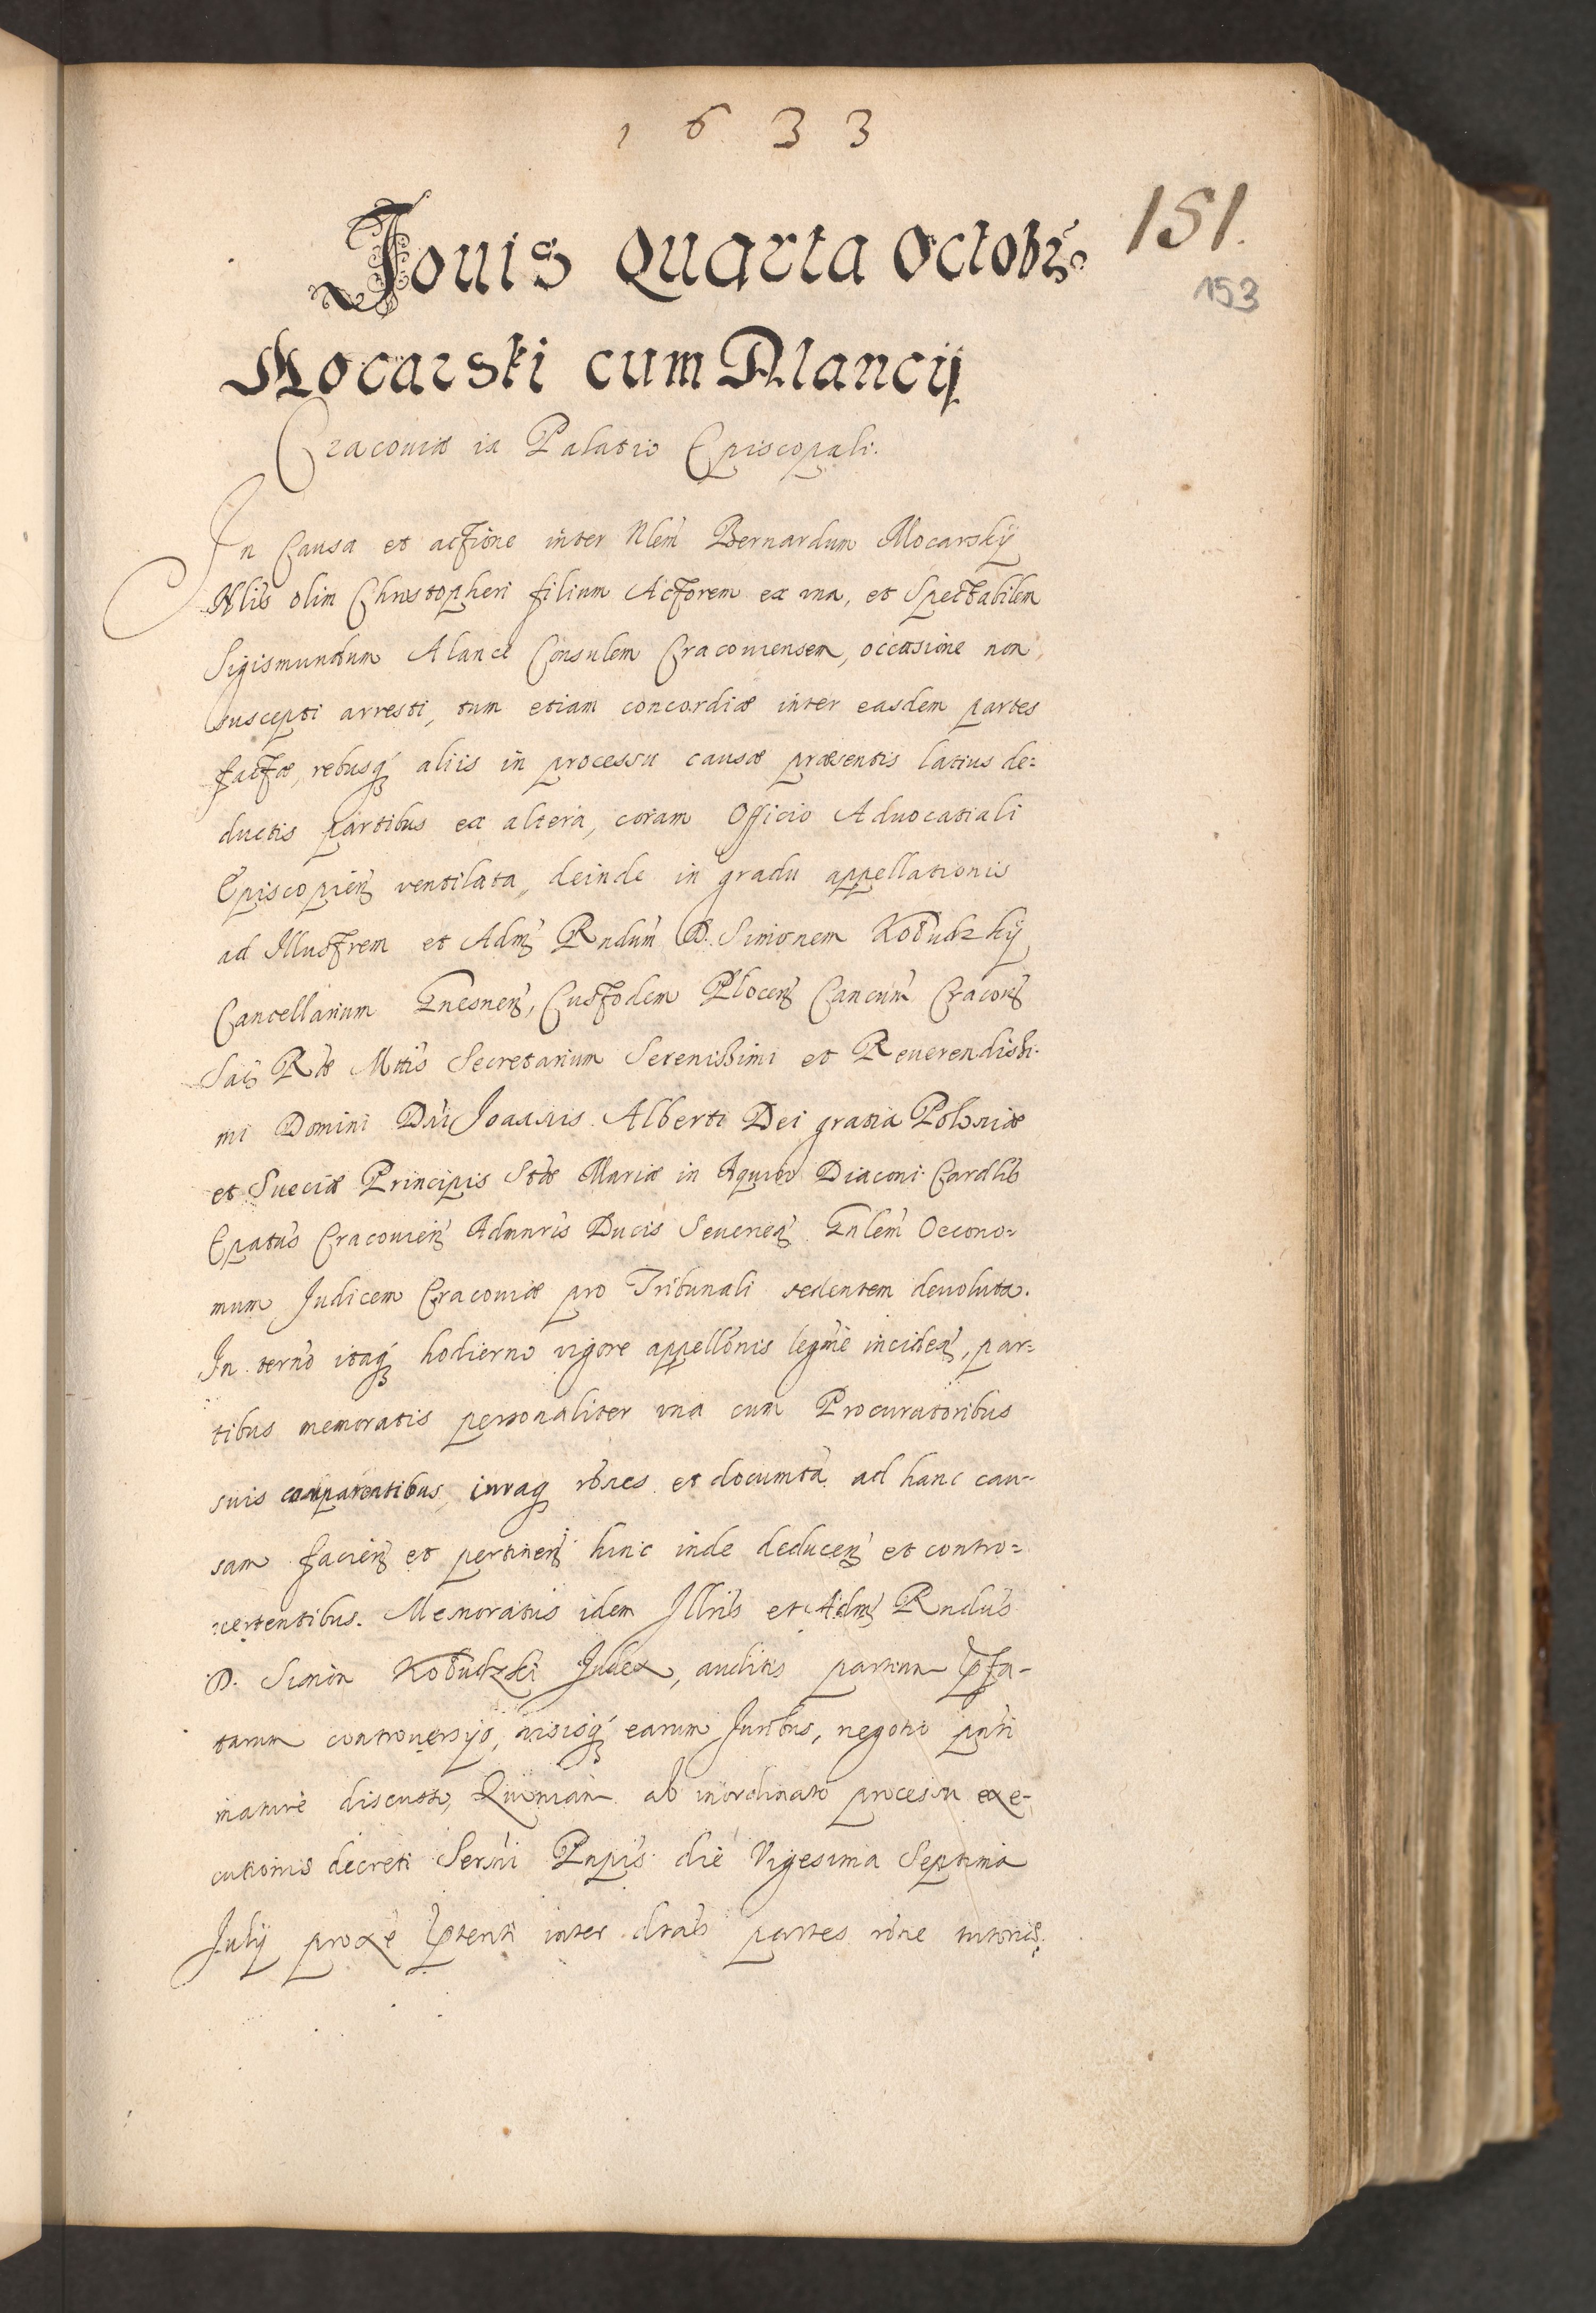 1633
151.
Jouis Quarta Octobr̃
153
Mocarski cum Alancij
Cracouiæ in Palatio Episcopali.
In Causa et actione inter Nlem̃ Bernardum Mocarskij
Nlis̃ olim Christopheri filium Actorem ex una, et Spectabilem
Sigismundum Alance Consulem Cracouiensem, occasione non
suscepti arresti, tum etiam concordiæ inter easdem partes
factæ, rebusq́ aliis in processu causæ præsentis latius de=
ductis partibus ex altera, coram Officio Aduocatiali
Episcopien̄ ventilata, deinde in gradu appellationis
ad Illustrem et Adm̃ Rndum̃ D. Simonem Kołudzkij
Cancellarium Gnesnen̄, Custodem Plocen̄ Cancum̃ Cracon̄
Sac̃ Ræ Mttis̃ Secretarium Serenissimi et Reuerendissi-
mi Domini Dñi Joannis Alberti Dei gratia Poloniæ
et Sueciæ Principis Stæ Mariæ in Aquiro Diaconi Cardlis̃
Epatus̃ Cracouien̄ Admnris̃ Ducis Seuerien̄ Gnlem̃ Oecono=
mum Judicem Cracouiæ pro Tribunali sedentem deuoluta.
In termo itaq́ hodierno vigore appellonis̃ legme incideñ, par=
tibus memoratis personaliter una cum Procuratoribus
suis comparentibus, iuraq́ rones et documta ad hanc cau-
sam facien̄ et pertinen̄ hinc inde deducen̄ et contro=
uertentibus. Memoratus idem Illris̃ et Adm̃ Rndus̃
D. Simon Kołudzki Judex, auditis partium p̃fa-
tarum controuersijs, visisq́ earum Juribus, negotio pnti
mature discusso, Quoniam ab inordinato processu exe-
cutionis decreti Sersmi Pnpis̃ die Vigesima Septima
Julij proxe p̃teriti inter dtas̃ partes rone